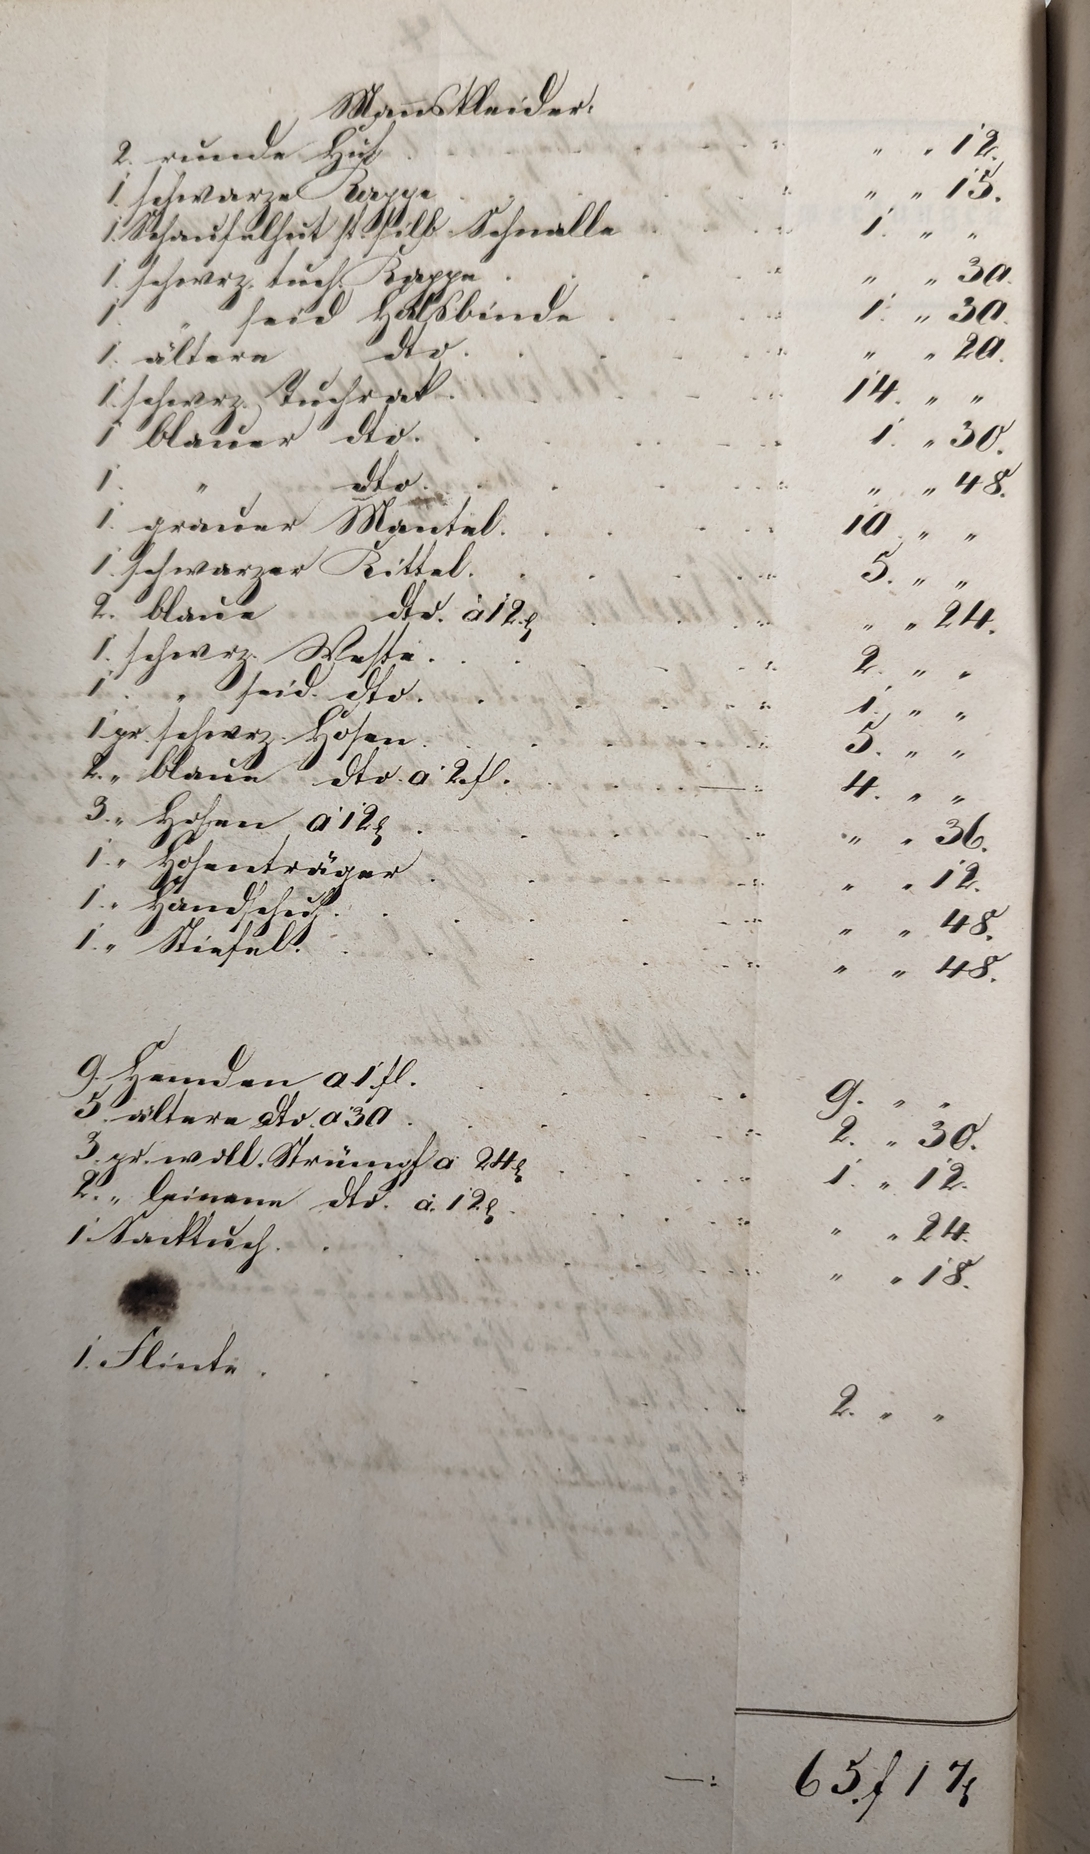 Mannskleider.
2. runde Hüt " " 12.
1 schwarze Kappe " " 15.
1. Schaufelhut st. silb Schnalle 1. " "
1. schwrz. tuch. Kappe " " 30.
1. " seid Halsbinde 1. " 30.
1. ältere dto. " " 20.
1. schwrz. Tuchrok 14. " "
1 blauer dto. 1. " 30.
1. " dto. " " 48.
1. grauer Mantel. 10 " "
1. schwarzer Kittel. 5. " "
2. blaue dto. à 12 x " " 24.
1. schwrz. Weste. 2. " "
1. " seid. dto. 1. " "
1 pr. schwrz. Hosen. 5. " "
2. " blaue dto. à 2 fl. 4. " "
3. " Hosen à 12 x " " 36.
1. " Hosenträger " " 12.
1. " Handschuh. " " 48.
1. " Stiefel. " " 48.
9. Hemden a 1 fl. 9. " "
5. ältere dto. à 30 2. " 30.
3. pr. woll. Strümpf a 24 x 1. " 12.
2. " leinene dto. à 12 x " " 24.
1. Sacktuch. " " 18.
1. Flinte. 2. " "
—: 65. f 17 x